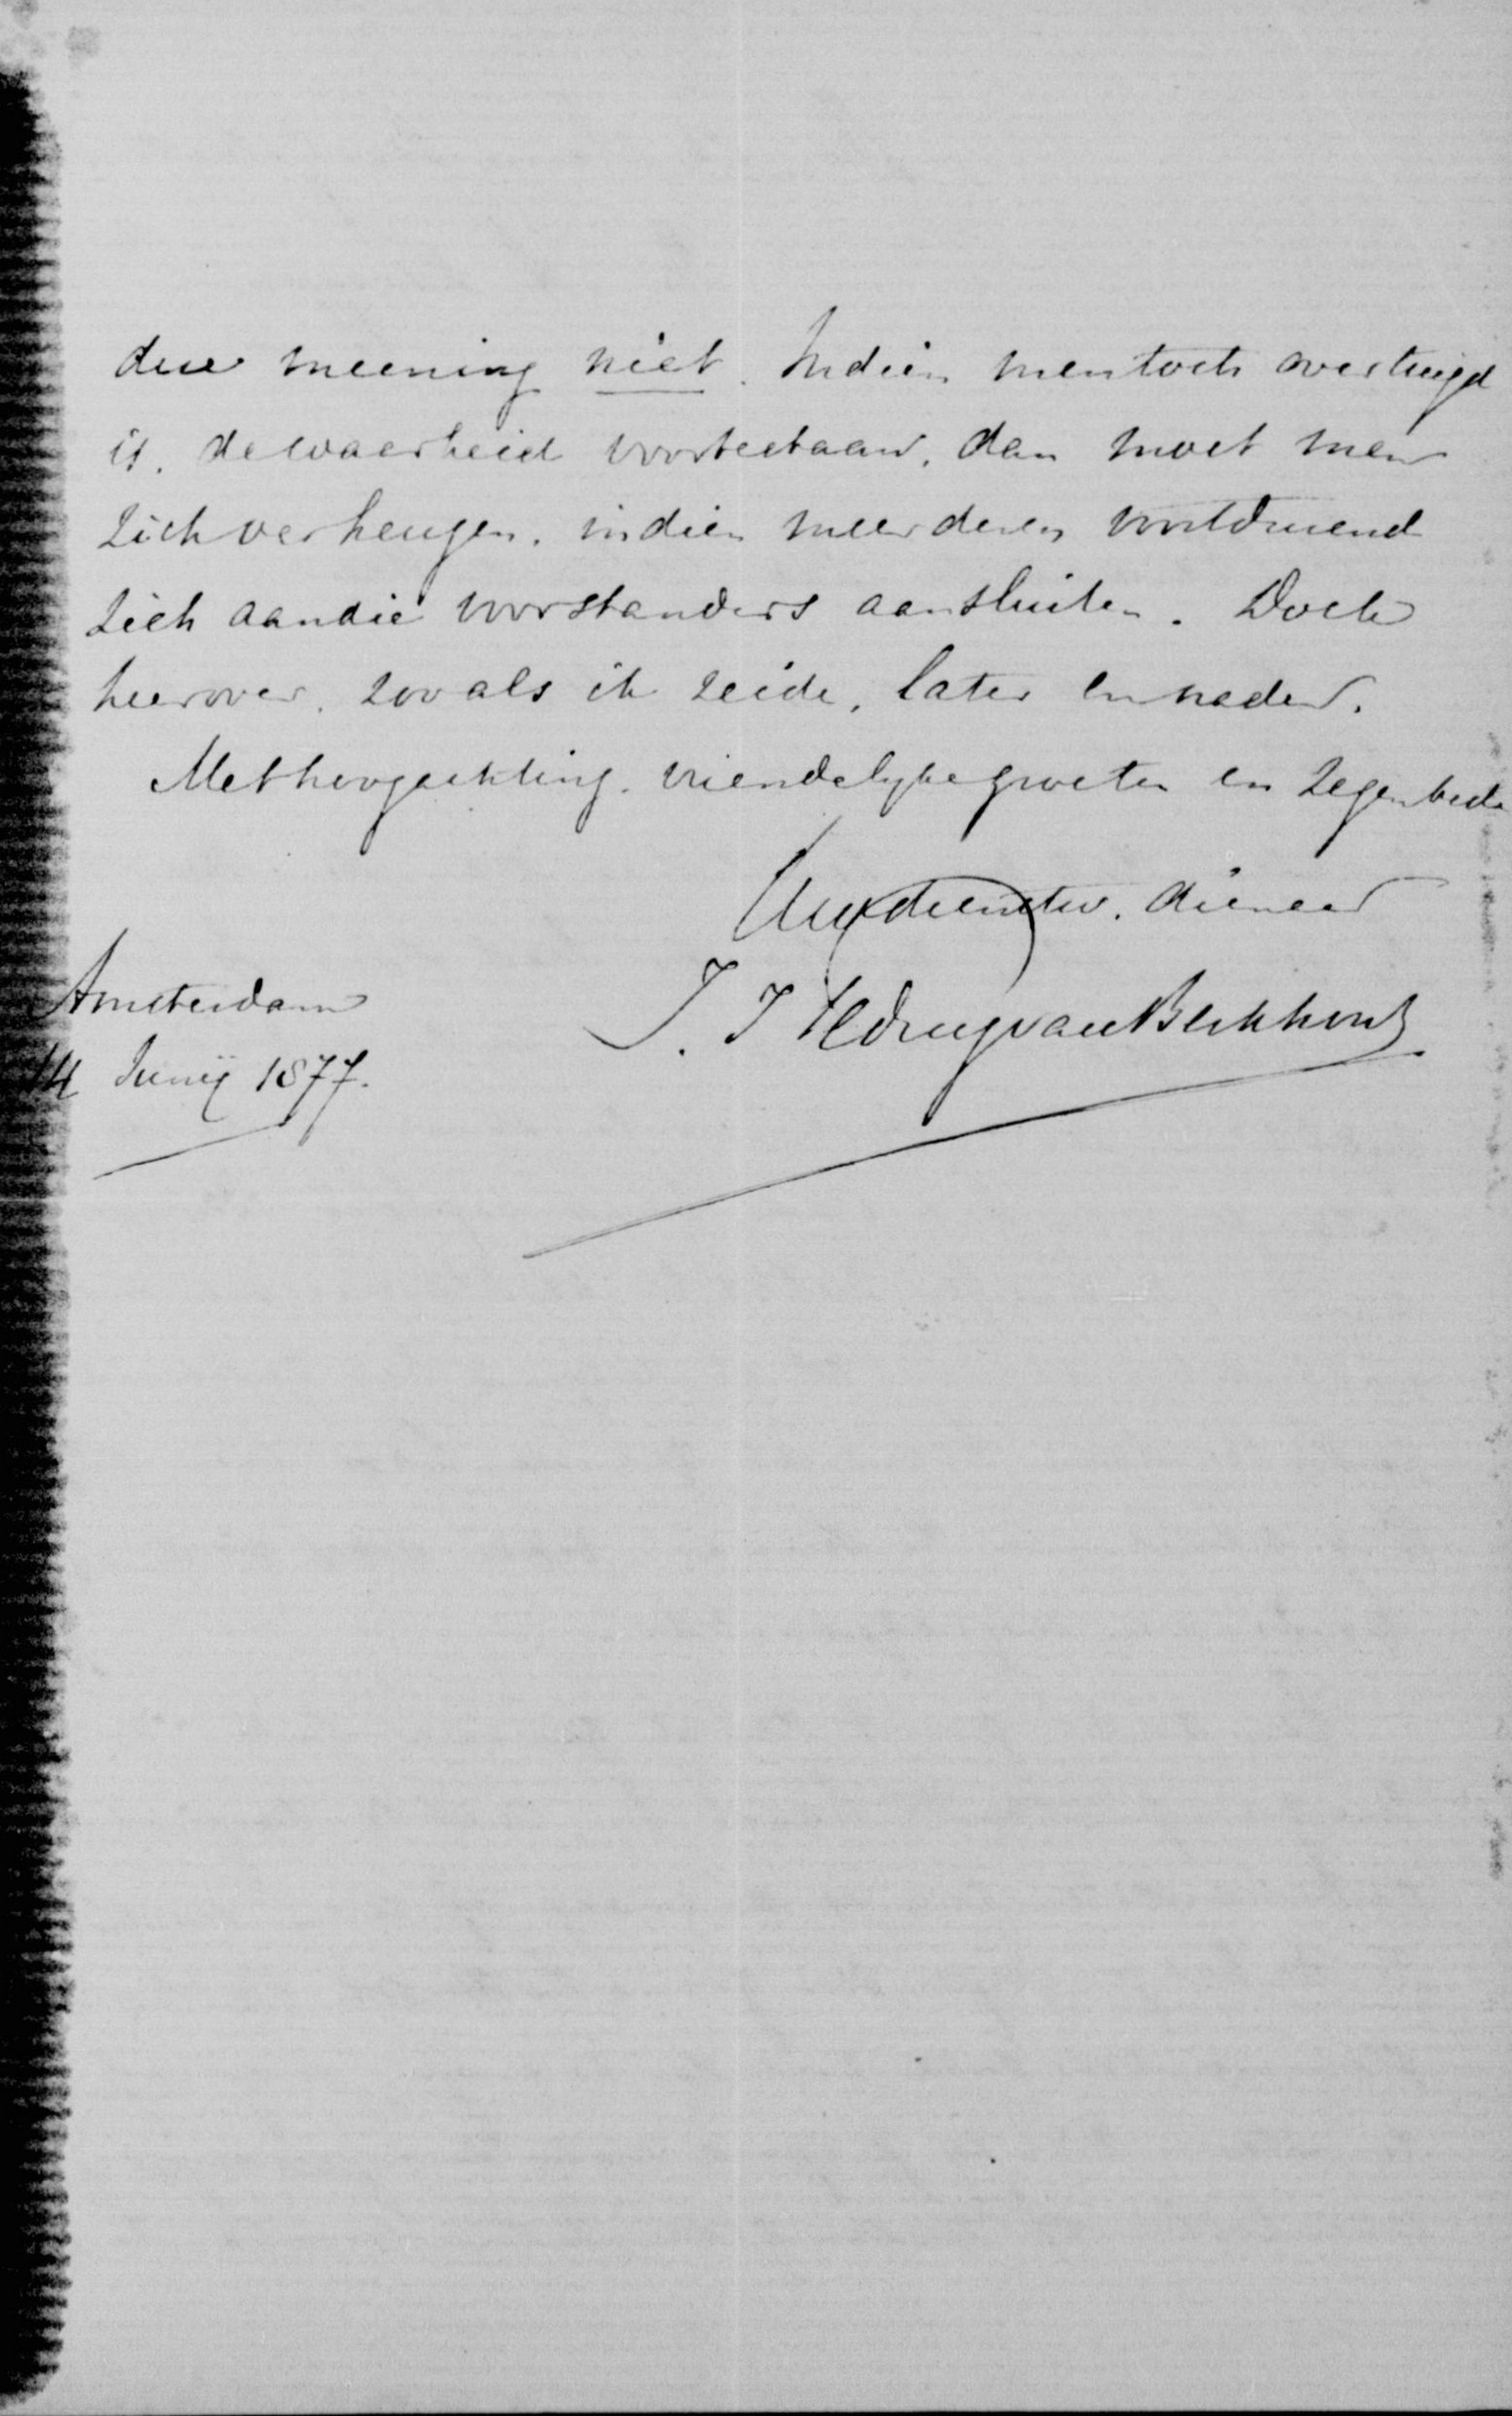 deze meening niet. Indien men toch overtuigd
is, de waarheid voorte staan, dan moet men
zich verheugen, indien meerderen voortdurend
zich aan die voorstanders aansluiten. Doch
hierover, zooals ik zeide, later en nader.
Met hoogachting, vriendelyke groeten en zegenbede
Uw dienstw. dienaar
J. J. Teding van Berkhout
Amsterdam
14 Junij 1877.